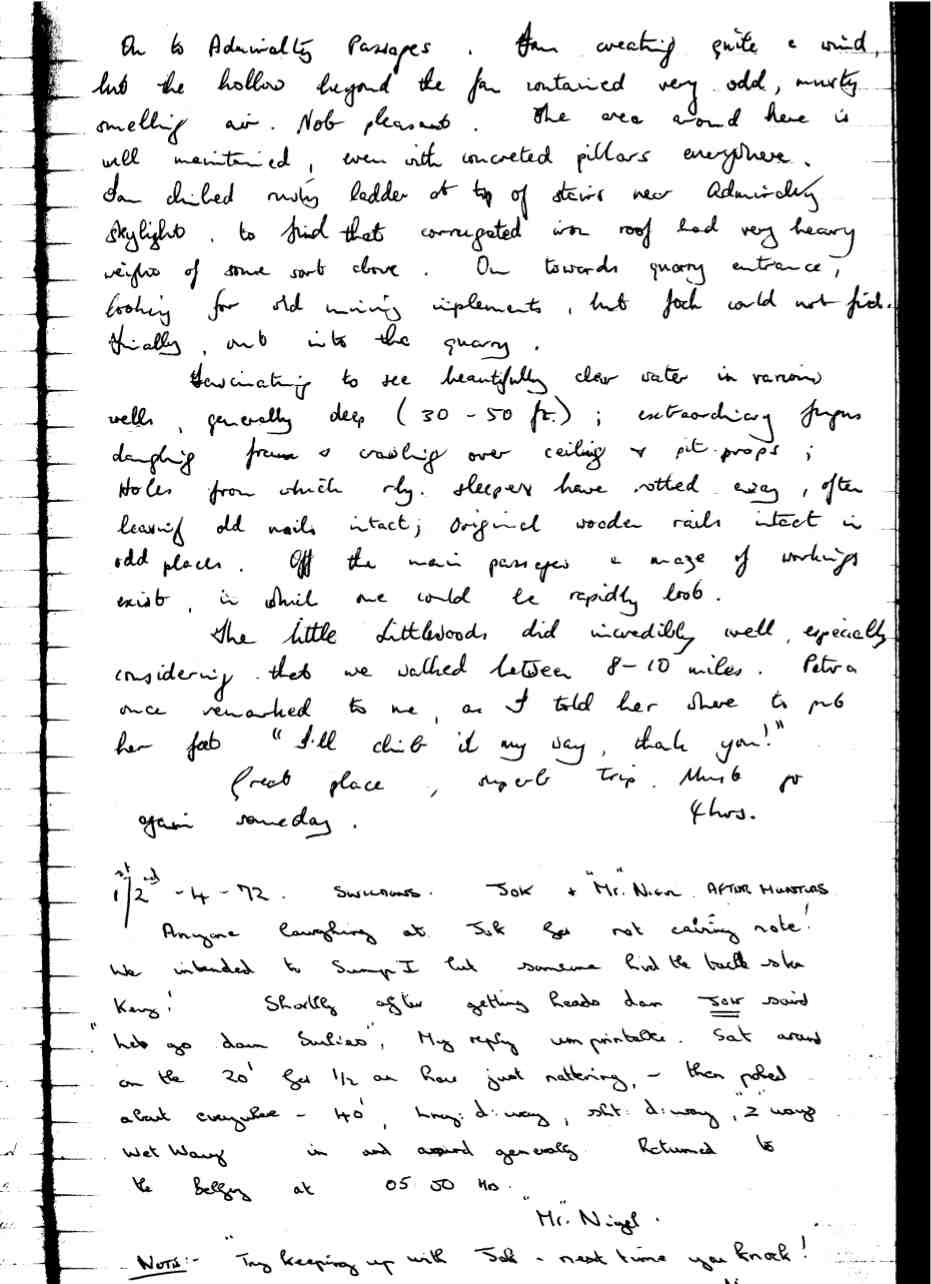 On to Admiralty Passages. Fan creating quite a wind,
but the hollow beyond the fan contained very odd, musty
smelling air. Not pleasant. The area around here is
well maintained, even with concreted pillars everywhere.
Ian climbed rusty ladder at top of stairs near Admiralty
skylight, to find that corrugated iron roof had very heavy
weight of some sort above. On towards quarry entrance,
looking for old mining implements, but Jock could not find.
Finally, out into the quarry.
Fascinating to see beautifully clear water in various
wells, generally deep (30 - 50 ft.); extraordinary fungus
dangling from & crawling over ceiling & pit props;
Holes from which rly. sleepers have rotted away, often
leaving old nails intact; original wooden rails intact in
odd places. Off the main passages a maze of workings
exist, in which one could be rapidly lost.
The little Littlewoods did incredibly well, especially
considering that we walked between 8-10 miles. Petra
once remarked to me, as I told her where to put
her feet "I'll climb it my way, thank you!"
Great place, superb trip. Must go
again someday. 4 hrs.
1st/2nd - 4 - 72. SWILDONS. JOK + "Mr." NIGEL AFTER HUNTERS
Anyone laughing at Jok for not caving note!
We intended to Sump I but someone hid the
Key! Shortly after getting heads down JOK said
"Lets go down Swildons", My reply unprintable. Sat around
on the 20' for 1/2 an hour just nattering, - then poked
about everywhere - 40', Long: d: way, sht: d: way, "Z" way
Wet Way in and around generally. Returned to
the Belfry at 05 50 Hrs.
"Mr." Nigel.
NOTE:- Try keeping up with Jok - next time you knock!